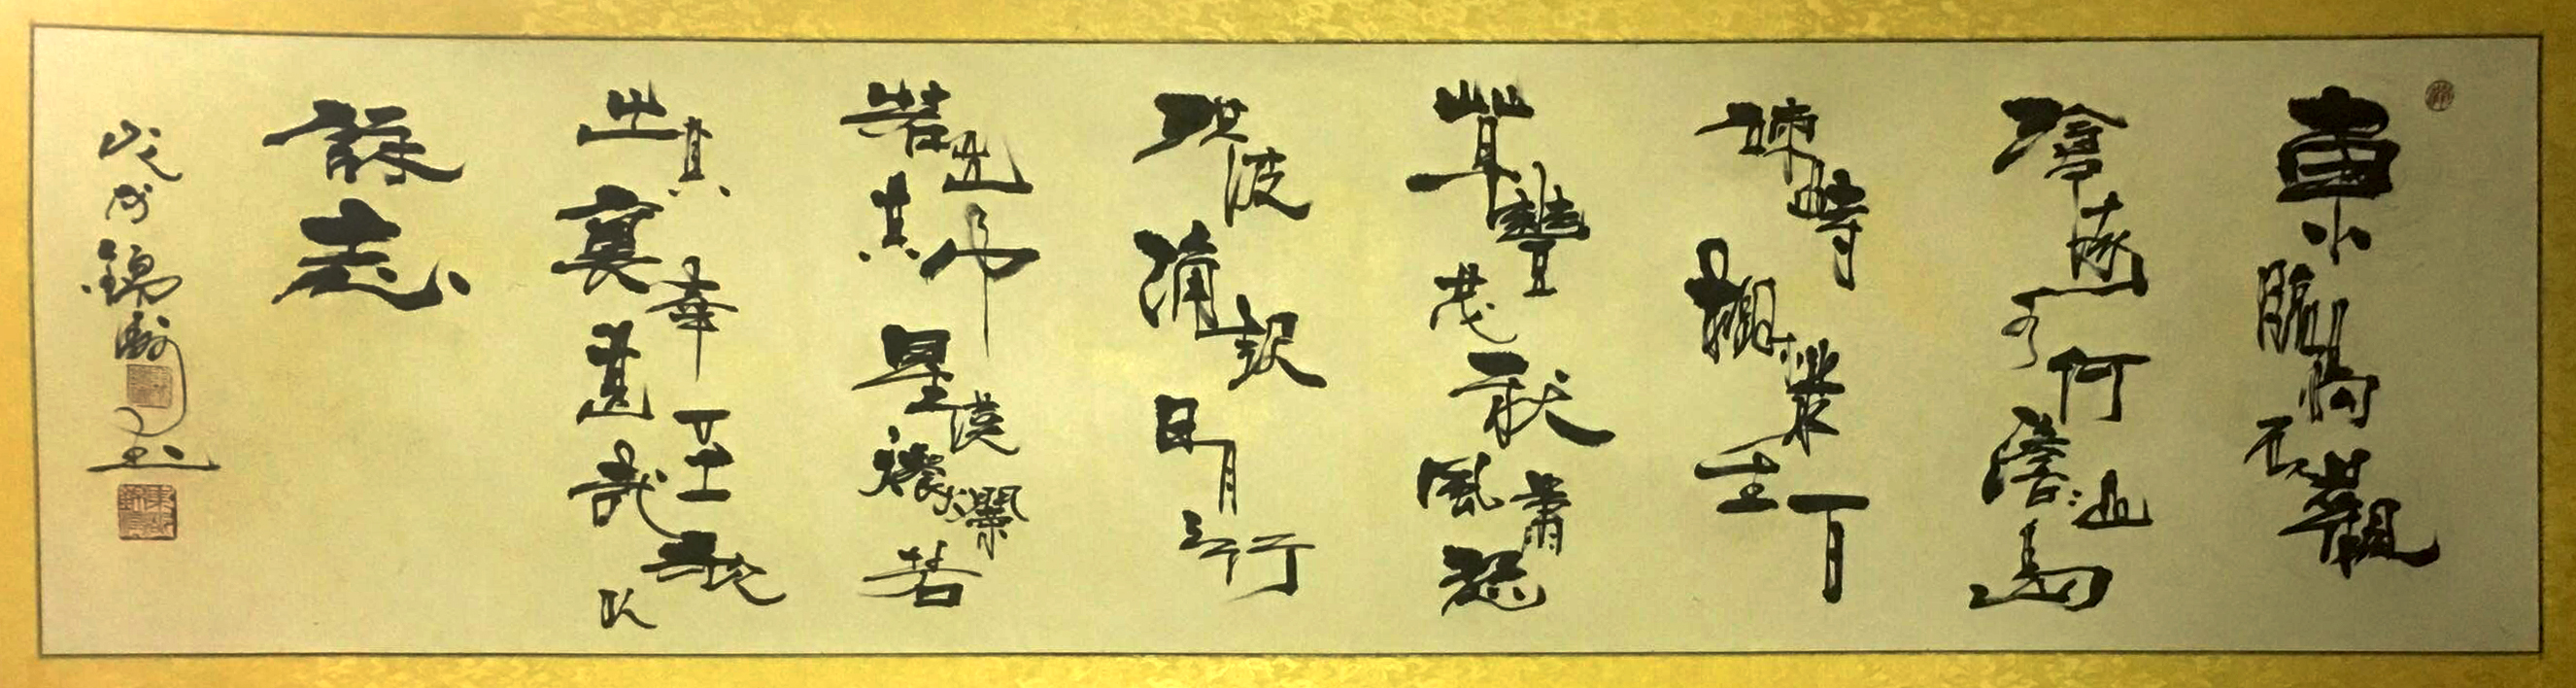 東臨碣石觀
滄海水何澹澹山島
竦峙樹木叢生百
草豐茂秋風蕭瑟
洪波涌起日月之行
若出其中星漢燦爛若
出其裏幸甚至哉歌以
詠志
戊戌錦